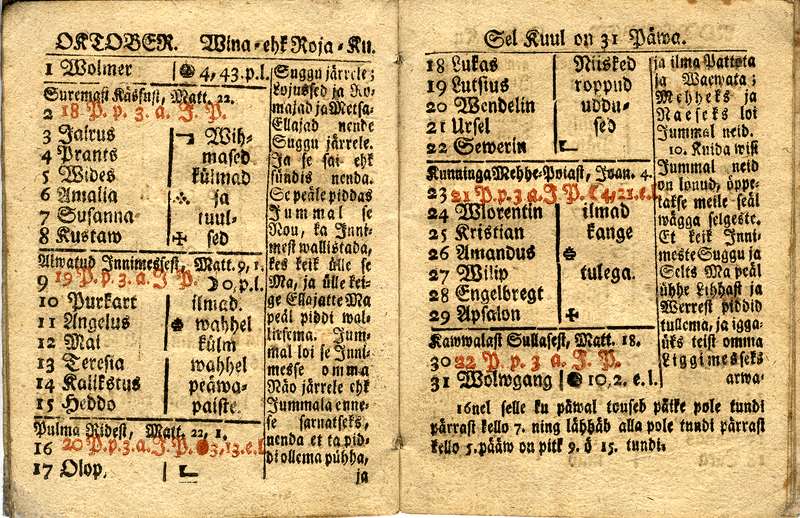 OKTOBER. Wina-ehk Roja-Ku.
1 Wolmer 4, 43. p. l.
Suremast Käsust, Matt. 22.
2 18 P. p. 3. a. J. P.
3 Jairus Wih-
4 Prants mased
5 Wides külmad
6 Amalia ja
7 Susanna tuul-
8 Kustaw sed
Alwatud Innimessest, Matt. 9, 1.
9 19 P. p. 3. a. J. P. 0, p. l.
10 Purkart ilmad.
11 Angelus wahhel
12 Mai külm
13 Teresia wahhel
14 Kalikstus peäwa-
15 Heddo paiste.
Pulma Ridest, Matt. 22, 1.
16 20 P. p. 3. a. J. P. 3, 13. e. l.
17 Olop.
Suggu järrele;
Lojussed ja Ro-
majad ja Metsa-
Ellajad nende
Suggu järrele.
Ja se sai ehk
sündis nenda.
Se peäle piddas
Jummal se
Nou, ka Inni-
mest wallistada,
kes keik ülle se
Ma, ja ülle kei-
ge Ellajatte Ma
peäl piddi wal-
litsema. Jum-
mal loi se Inni-
messe omma
Näo järrele ehk
Jummala enne-
se sarnatseks,
nenda et ta pid-
di ollema pühha,
ja
Sel Kuul on 31 Päwa.
18 Lukas Niisked
19 Lutsius roppud
20 Wendelin uddu-
21 Ursel sed
22 Sewerin
Kunninga Mehhe-Poiast, Joan. 4.
23 21 P. p. 3. a. J. P. 4, 21. e. l.
24 Wlorentin ilmad
25 Kristian kange
26 Amandus
27 Wilip tulega.
28 Engelbregt
29 Apsalon
Kawwalast Sullasest, Matt. 18.
30 22 P. p. 3 a. J. P.
31 Wolwgang 10, 2. e. l.
ja ilma Pattota
ja Waewata;
Mehheks ja
Naeseks loi
Jummal neid.
10. Kuida wist
Jummal neid
on lonud, öppe-
takse meile seäl
wägga selgeste.
Et keik Inni-
meste Suggu ja
Selts Ma peäl
ühhe Lihhast ja
Werrest piddid
tullema, ja igga-
üks teist omma
Liggimesseks
arwa-
16nel selle ku päwal touseb päike pole tundi
pärrast kello 7. ning lähhäb alla pole tundi pärrast
kello 5. pääw on pitk 9. ö 15. tundi.